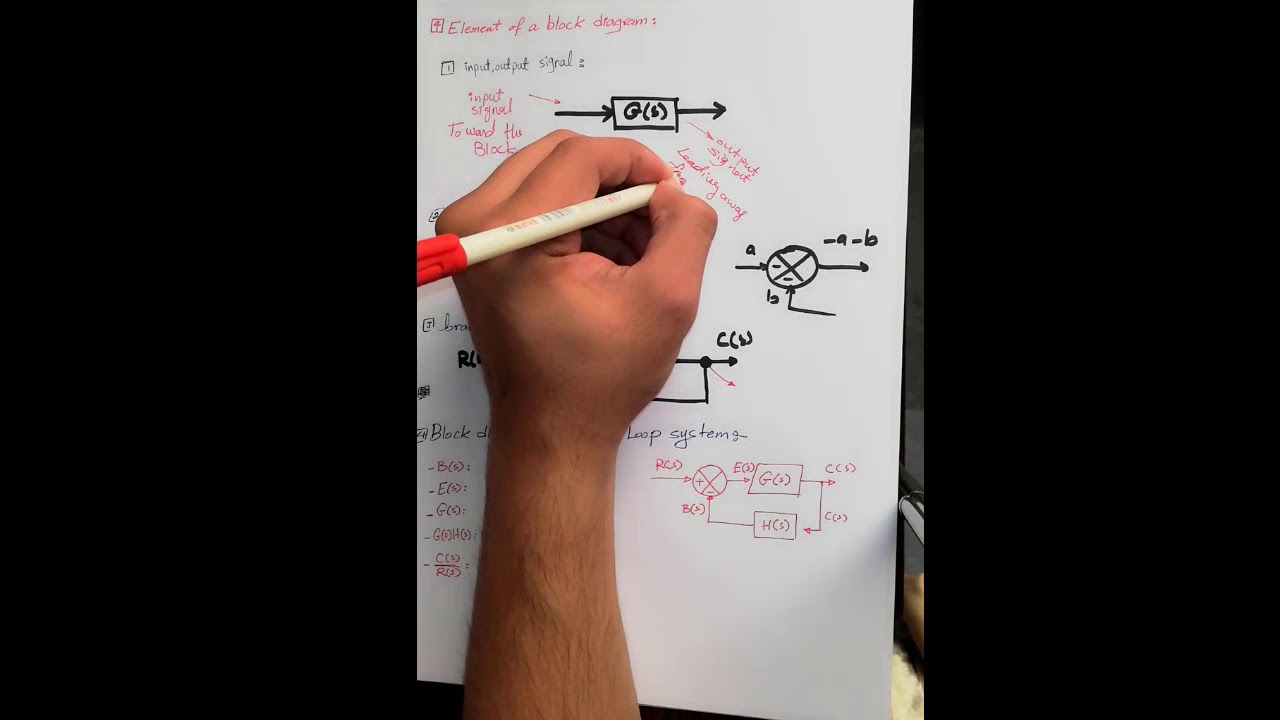 4 Element of a block diagram:
1 input, output signal:
input
signal
To ward the
Block
G(s)
output
Leading away
a
-a-b
-
-
b
3
R(
C(s)
Block
Loop system:
- B(s):
- E(s):
- G(s):
- G(s)H(s):
- C(s)
R(s) :
R(s)
+
-
E(s)
G(s)
C(s)
B(s)
H(s)
C(s)